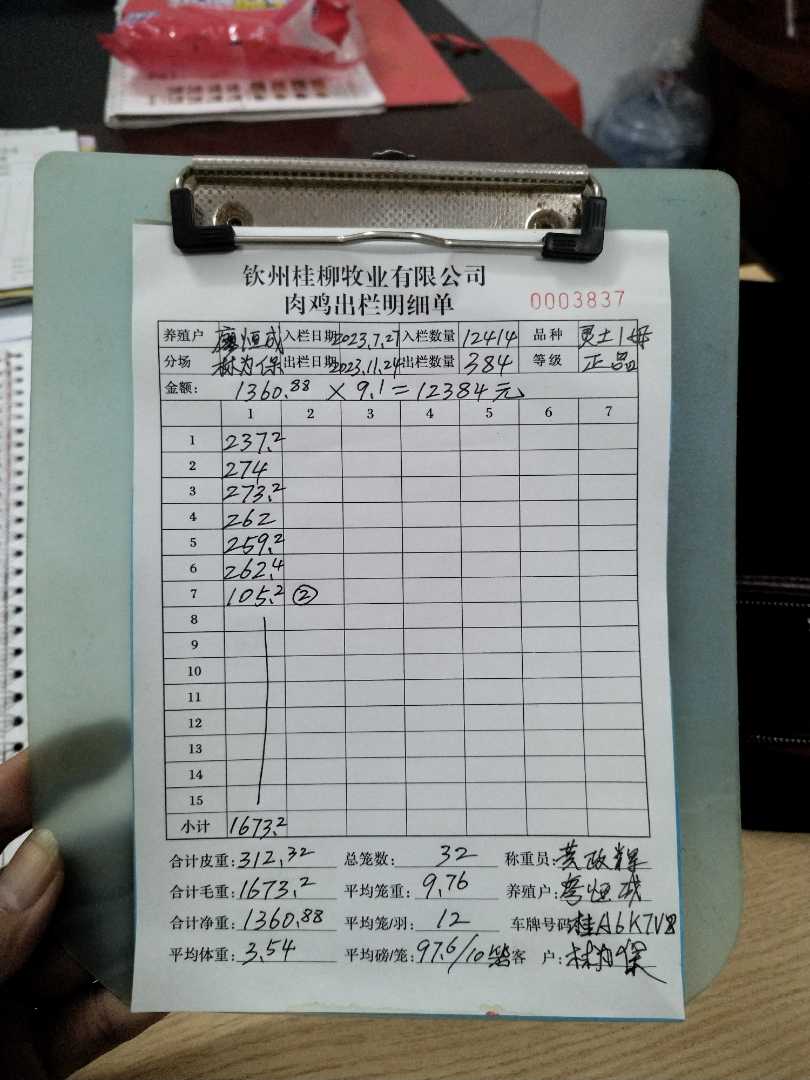 钦州桂柳牧业有限公司
肉鸡出栏明细单 0003837
养殖户 廖恒成 入栏日期 2023.7.27 入栏数量 12414 品种 灵土1母
分场 林为保 出栏日期 2023.11.24 出栏数量 384 等级 正品
金额: 1360.88 × 9.1 = 12384元
1 2 3 4 5 6 7
1 237.2
2 274
3 273.2
4 262
5 259.2
6 262.4
7 105.2 ②
8
9
10
11
12
13
14
15
小计 1673.2
合计皮重: 312.32 总笼数: 32 称重员: 黄政辉
合计毛重: 1673.2 平均笼重: 9.76 养殖户: 廖恒成
合计净重: 1360.88 平均笼/羽: 12 车牌号码: 桂A6K7V8
平均体重: 3.54 平均磅/笼: 97.6/10 客户: 林为保